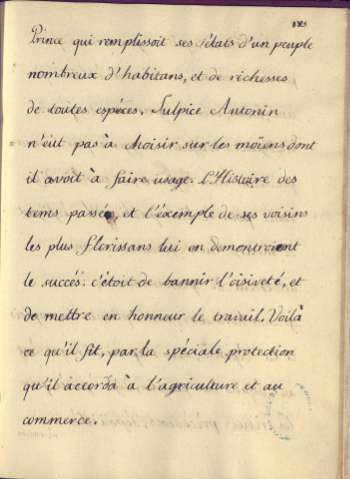 Prince qui remplissoit ses Etats d'un peuple
nombreux d'habitans, et de richesses
de toutes espéces. Sulpice Antonin
n'eût pas à choisir sur les moïens dont
il avoit à faire usage. L'Histoire des
tems passés, et l'éxemple de ses voisins
les plus florissans lui en démontroient
le succés: c'étoit de bannir l'oisiveté, et
de mettre en honneur le travail. Voilà
ce qu'il fit, par la spéciale protection
qu'il accorda à l'agriculture et au
commerce.